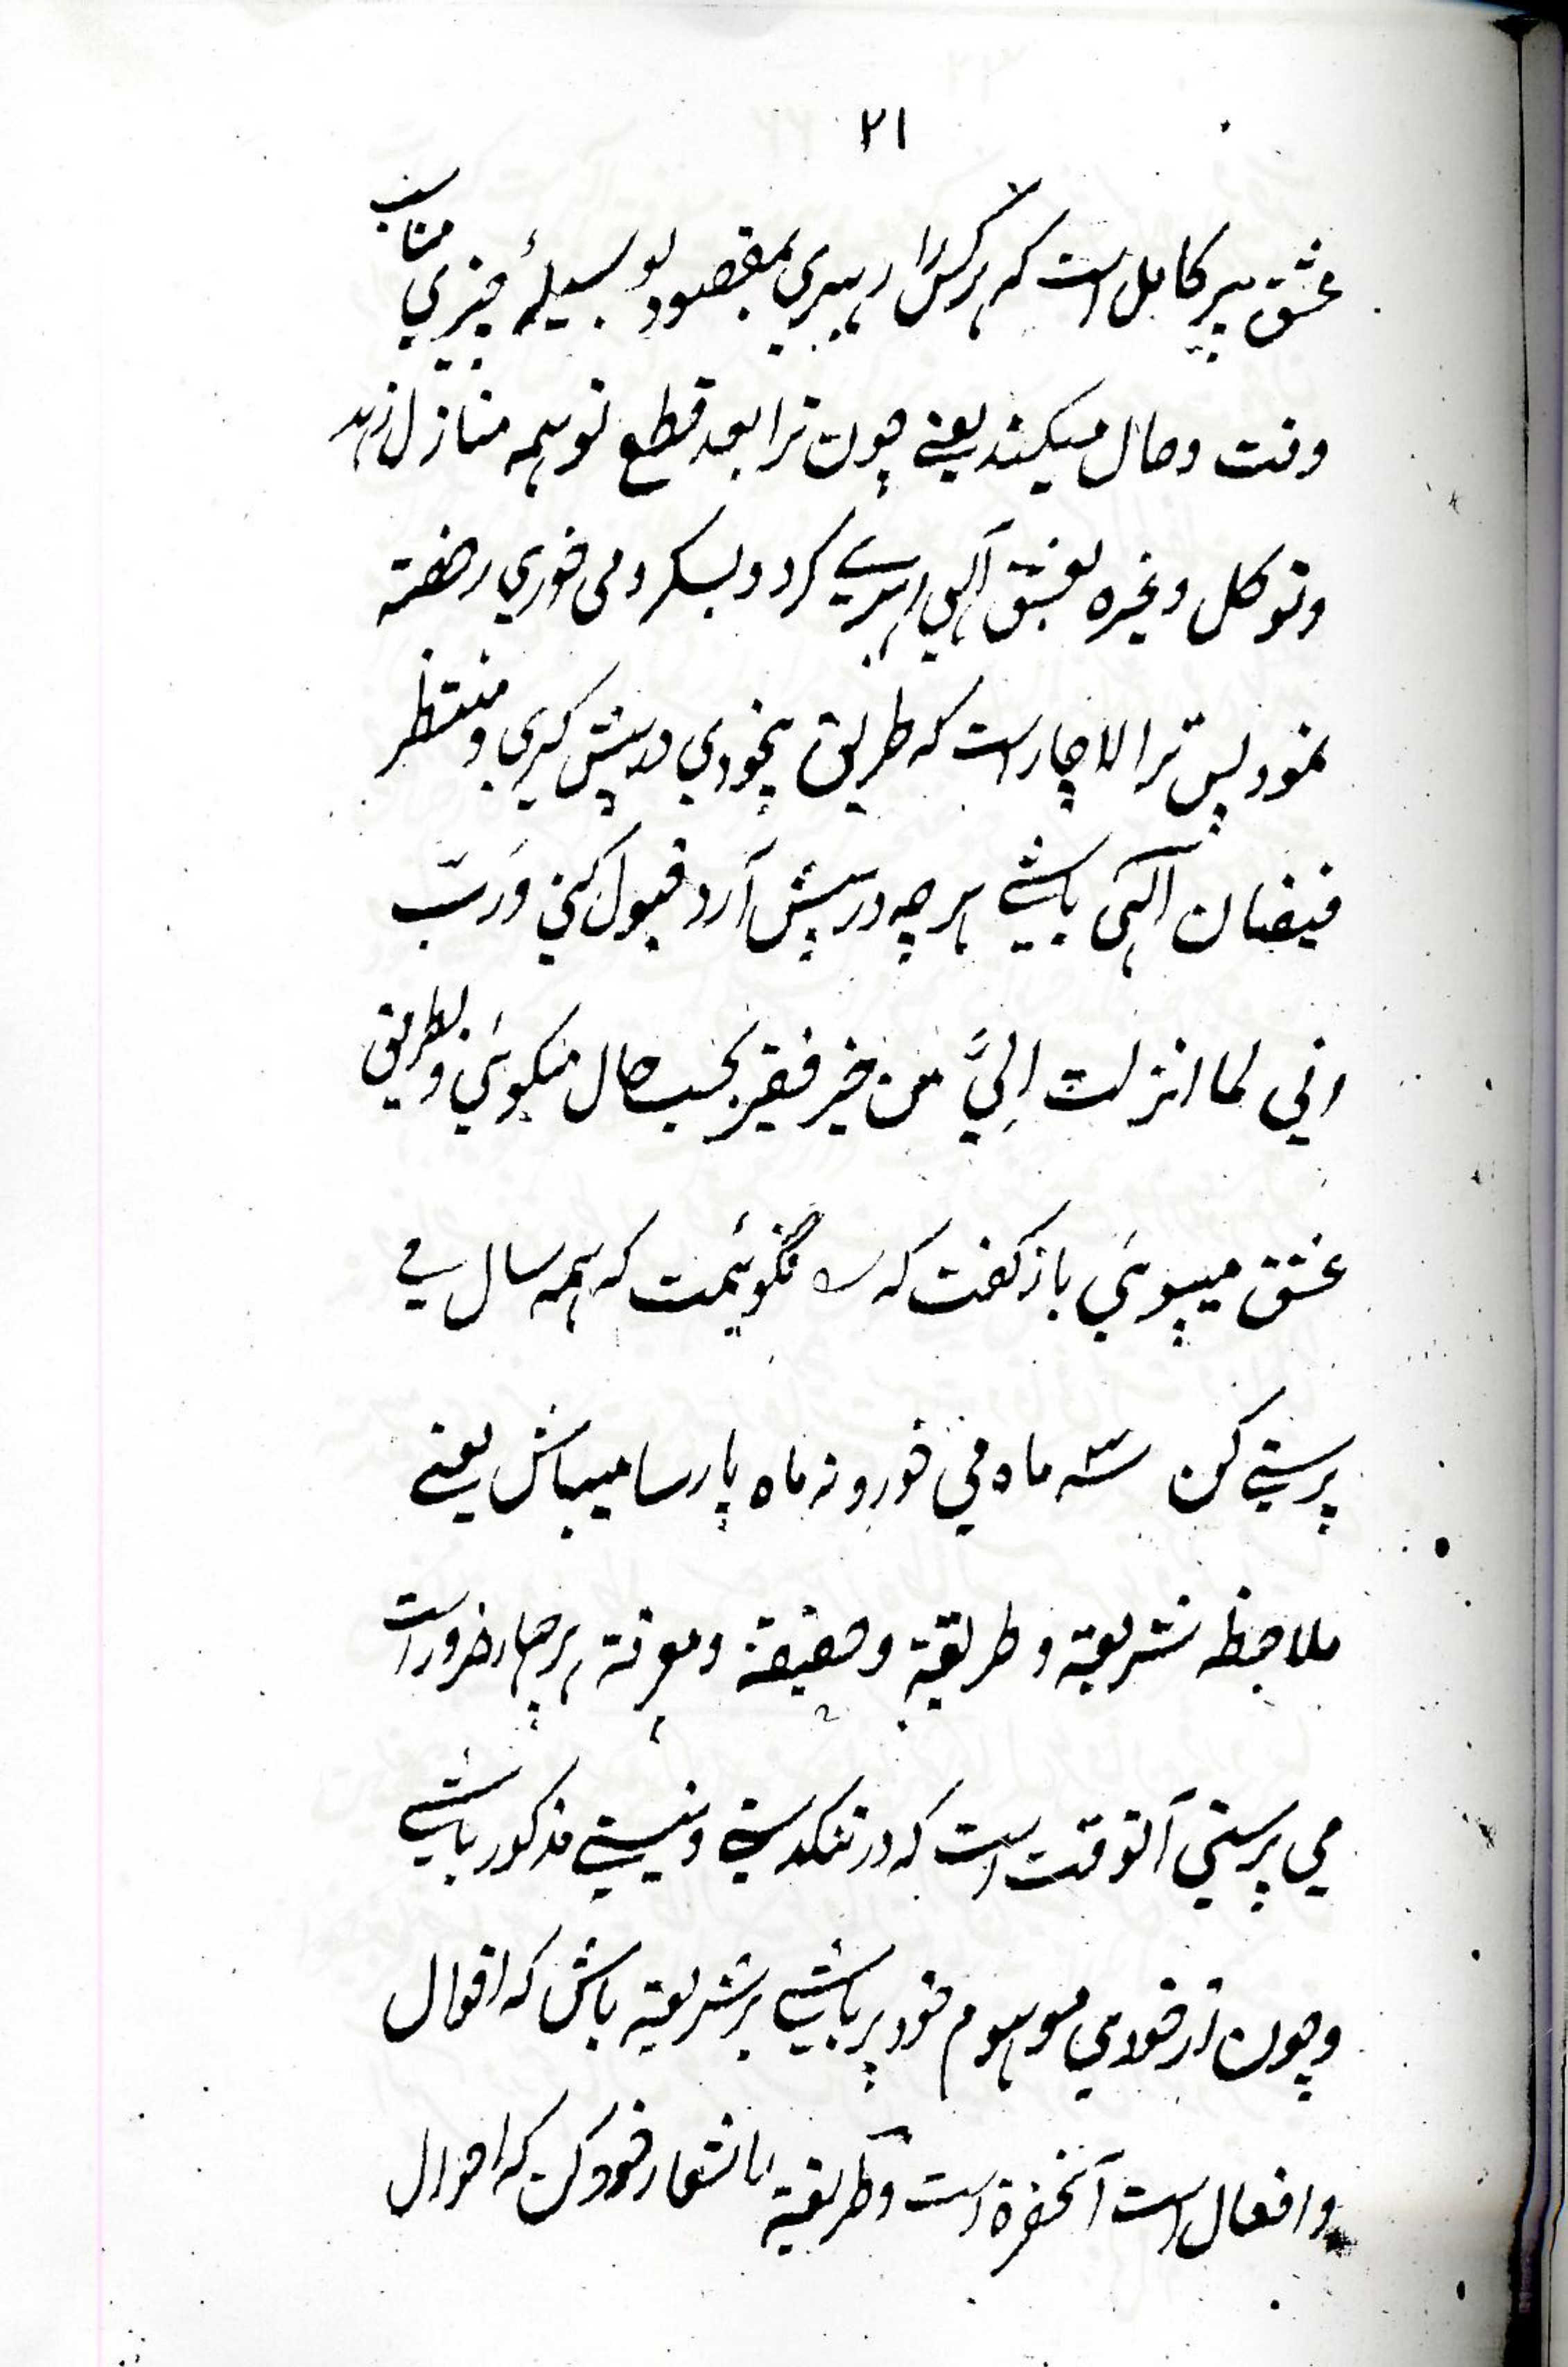 ۲۱
عشق پیر کامل است که هر کس را رهبری بمقصود بوسیلهٔ چیزی مناسب
وقت وحال میکند یعنے چون ترا بعد قطع تو همه منازل زهد
وتوکل وغیره بعشق آلهی رهبرے کرد وبسکر ومی خوری رخصة
نمود پس ترا لاچار است که طریق بیخودی در پیش گیری ومنتظر
فیضان آلهی باشے هر چه در پیش آرد قبول کنی وَرَبّ
انی لما انزلت اِلیَّ من خیر فقیر بحسب حال میگوئی وبطریق
عشق میپوئی باز گفت که نگوئیمت که همه سال مے
پرستے کن سه ماه می خور ونه ماه پارسا میباش یعنے
ملاحظه شریعة وطریقة وحقیقة ومعرفة هر چهار ضرور است
می پرستی آنوقت است که در تنگدستے ونیستے مذکور باشے
وچون از خودی موهوم خود پر باشے بر شریعة باش که اقوال
وافعال است آنحضرة است وطریقة را شعار خود کن که احوال